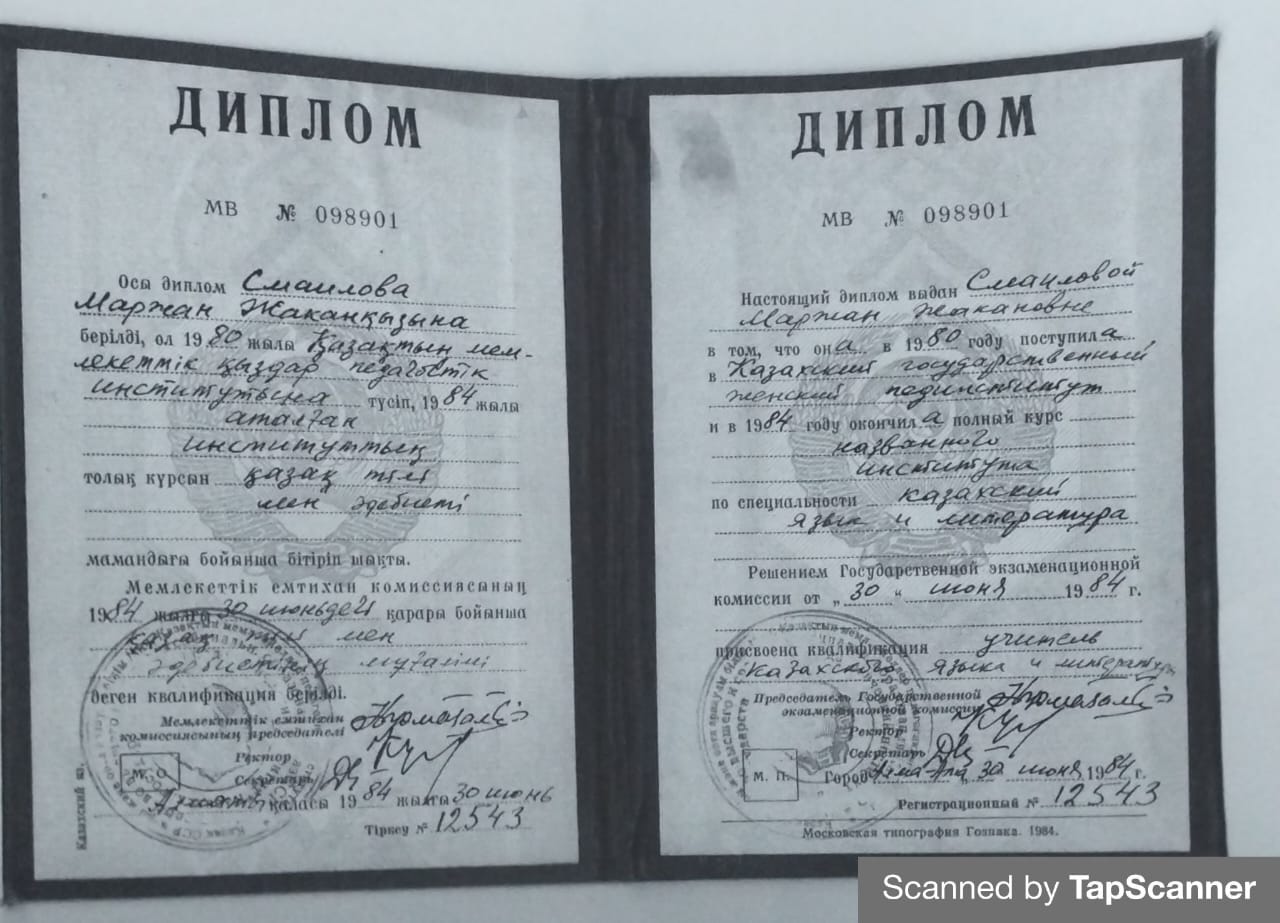 ДИПЛОМ
МВ № 098901
Осы диплом Смаилова
Маржан Жаканқызына
берілді, ол 1980 жылы Қазақтың мем-
лекеттік қыздар педагогтік
институтына түсіп, 1984 жылы
аталған
институттың
толық курсын қазақ тілі
мен әдебиеті
мамандығы бойынша бітіріп шықты.
Мемлекеттік емтихан комиссиясының
1984 жылғы 30 июньдегі қарары бойынша
қазақ тілі мен
әдебиетінің мұғалімі
деген квалификация берілді.
Мемлекеттік емтихан
комиссиясының председателі
Ректор
Секретарь
М. О.
Алматы қаласы 1984 жылғы 30 июнь
Тіркеу № 12543
Казахский яз.
ДИПЛОМ
МВ № 098901
Настоящий диплом выдан Смаиловой
Маржан Жакановне
в том, что она в 1980 году поступила
в Казахский государственный
женский пединститут
и в 1984 году окончила полный курс
названного
института
по специальности казахский
язык и литература
Решением Государственной экзаменационной
комиссии от „30“ июня 1984 г.
присвоена квалификация учитель
казахского языка и литературы
Председатель Государственной
экзаменационной комиссии
Ректор
Секретарь
М. П.
Город Алма-Ата 30 июня 1984 г.
Регистрационный № 12543
Московская типография Гознака. 1984.
Scanned by TapScanner